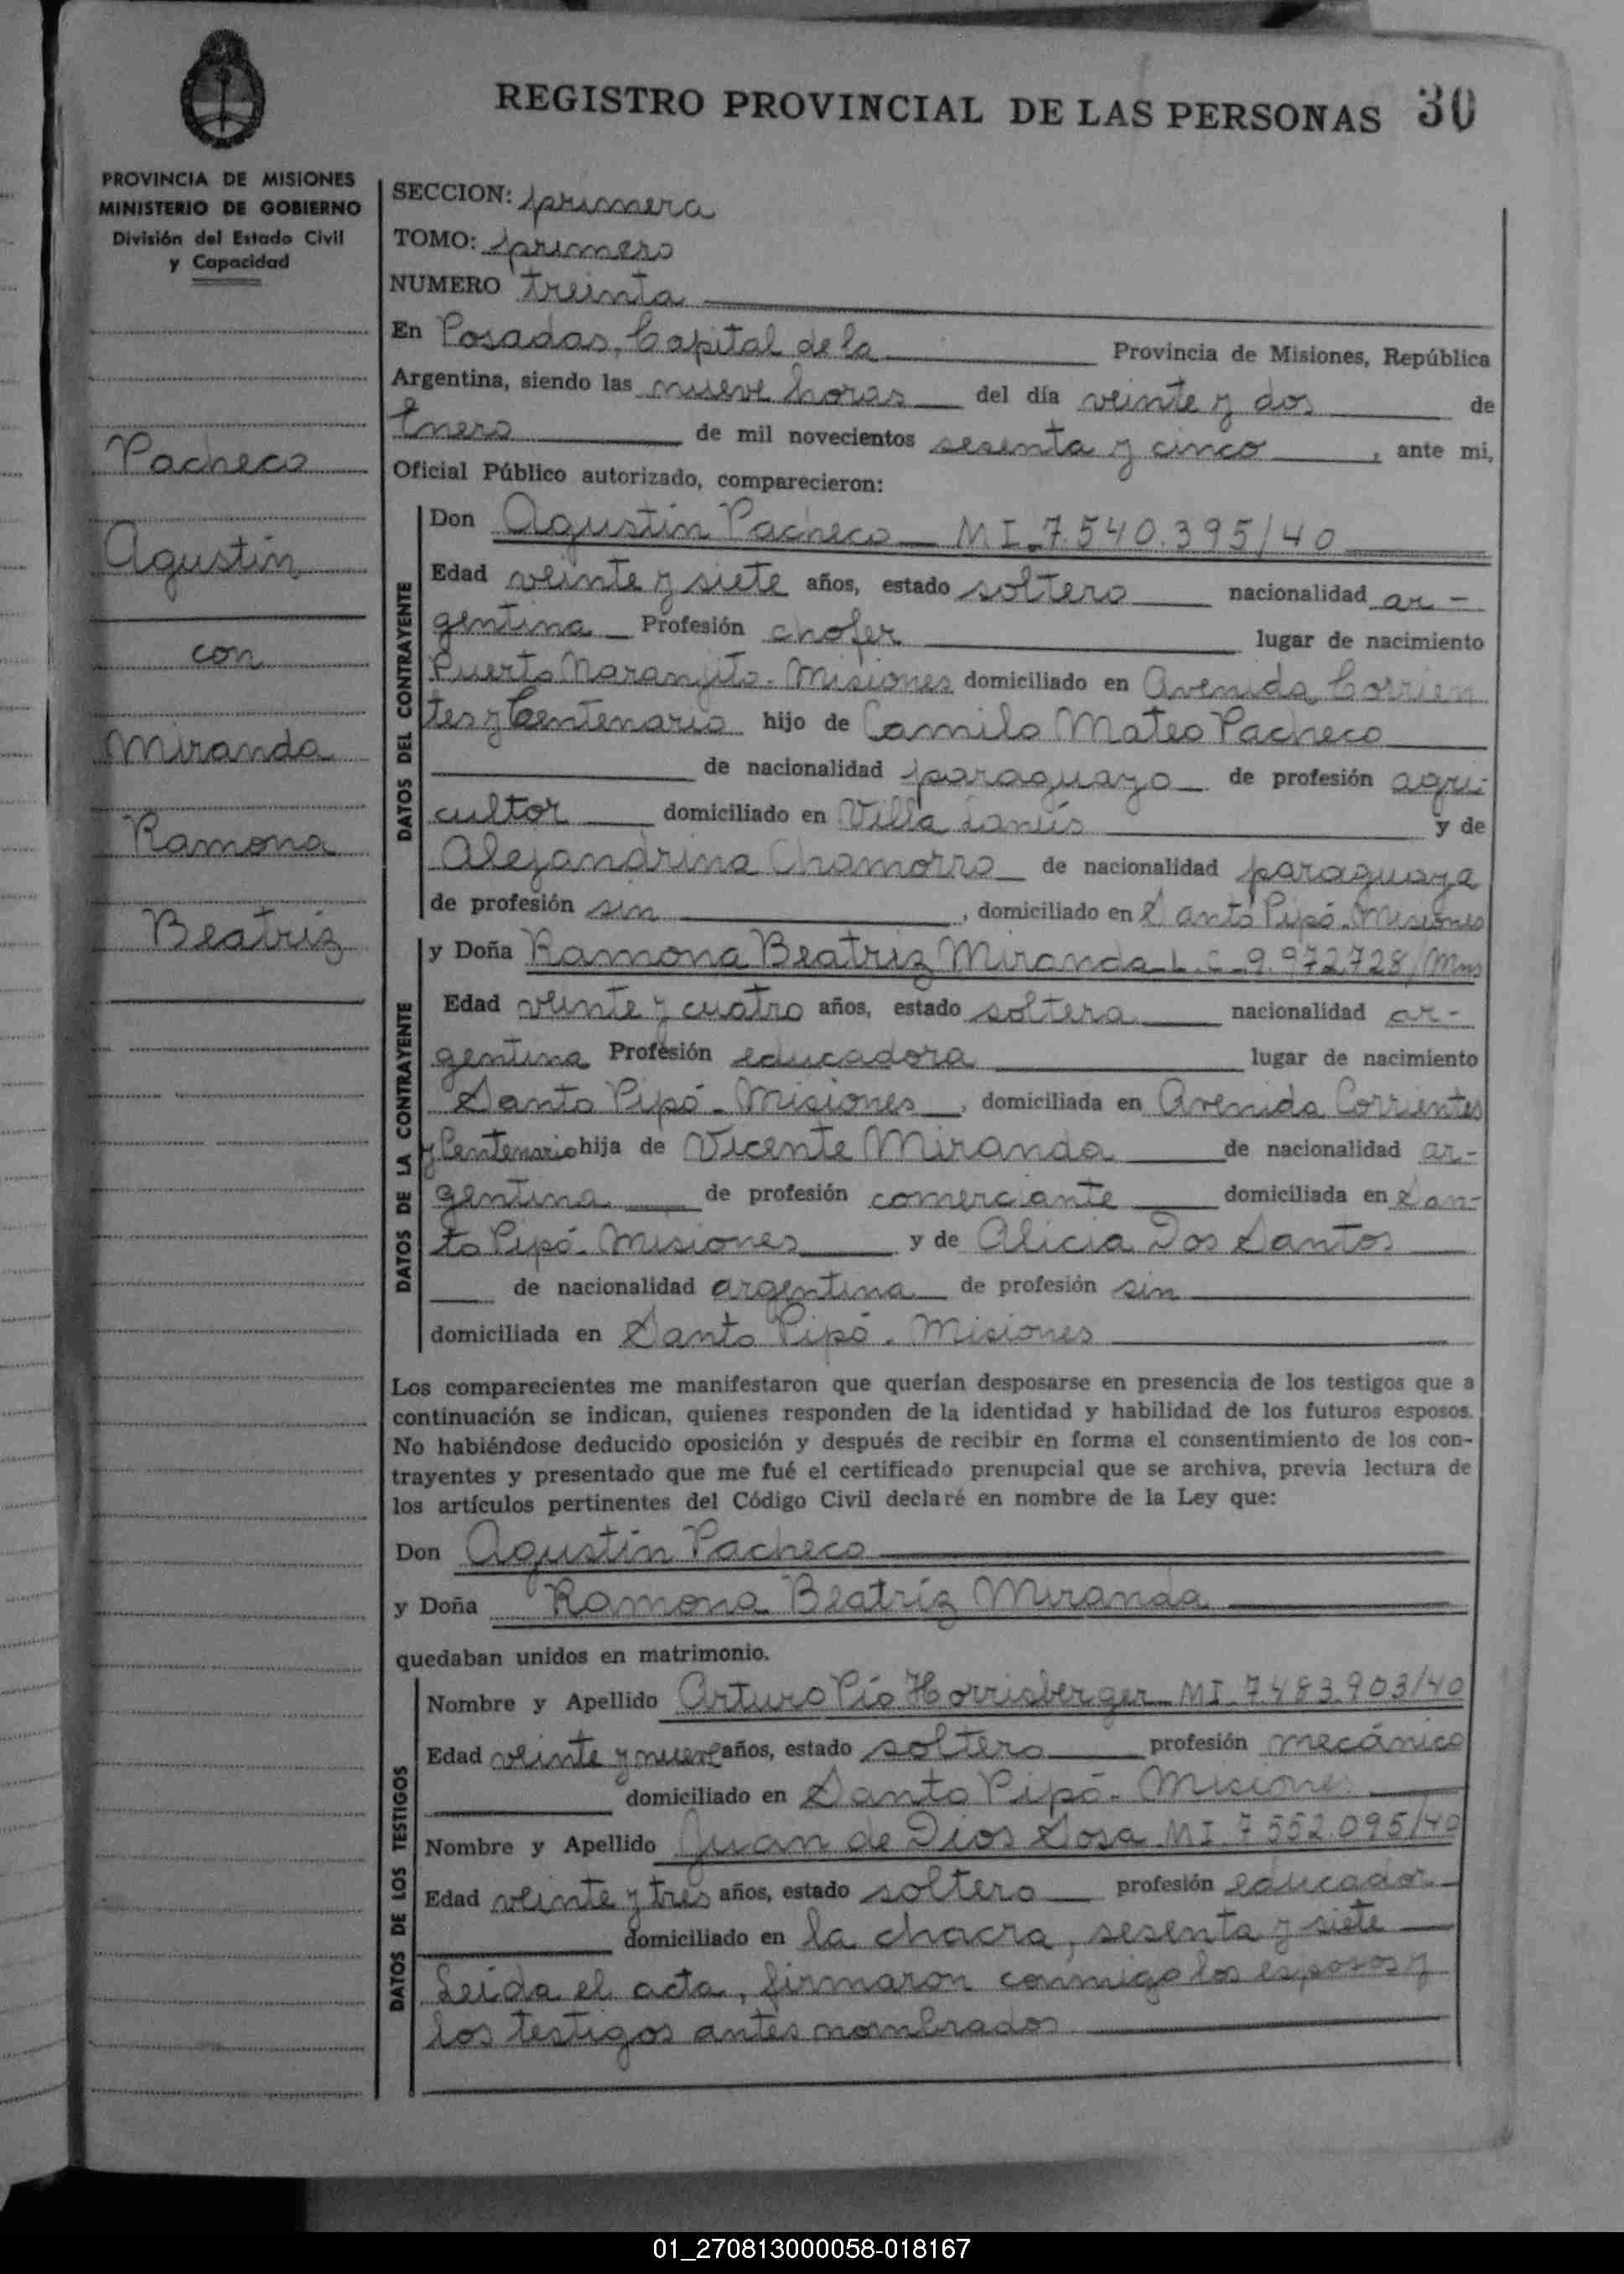 REGISTRO PROVINCIAL DE LAS PERSONAS 30
PROVINCIA DE MISIONES
MINISTERIO DE GOBIERNO
División del Estado Civil
y Capacidad
Pacheco
Agustín
con
Miranda
Ramona
Beatriz
SECCION: primera
TOMO: primero
NUMERO treinta
En Posadas, Capital de la Provincia de Misiones, República
Argentina, siendo las nueve horas del día veinte y dos de
Enero de mil novecientos sesenta y cinco, ante mi,
Oficial Público autorizado, comparecieron:
DATOS DEL CONTRAYENTE
Don Agustín Pacheco - MI - 7.540.395/40
Edad veinte y siete años, estado soltero nacionalidad ar-
gentina Profesión chofer lugar de nacimiento
Puerto Naranjito - Misiones domiciliado en Avenida Corrien
tes y Centenario hijo de Camilo Mateo Pacheco
de nacionalidad paraguayo de profesión agri-
cultor domiciliado en Villa Lanús y de
Alejandrina Chamorro de nacionalidad paraguaya
de profesión sin, domiciliado en Santo Pipó - Misiones
DATOS DE LA CONTRAYENTE
y Doña Ramona Beatriz Miranda - L. C - 9.972.728/Mns
Edad veinte y cuatro años, estado soltera nacionalidad ar-
gentina Profesión educadora lugar de nacimiento
Santo Pipó - Misiones, domiciliada en Avenida Corrientes
y Centenario hija de Vicente Miranda de nacionalidad ar-
gentina de profesión comerciante domiciliada en San-
to Pipó - Misiones y de Alicia Dos Santos
de nacionalidad argentina de profesión sin
domiciliada en Santo Pipó - Misiones
Los comparecientes me manifestaron que querían desposarse en presencia de los testigos que a
continuación se indican, quienes responden de la identidad y habilidad de los futuros esposos.
No habiéndose deducido oposición y después de recibir en forma el consentimiento de los con-
trayentes y presentado que me fué el certificado prenupcial que se archiva, previa lectura de
los artículos pertinentes del Código Civil declaré en nombre de la Ley que:
Don Agustín Pacheco
y Doña Ramona Beatríz Miranda
quedaban unidos en matrimonio.
DATOS DE LOS TESTIGOS
Nombre y Apellido Arturo Pío Horrisberger - MI - 7.483.903/40
Edad veinte y nueve años, estado soltero profesión mecánico
domiciliado en Santo Pipó - Misiones
Nombre y Apellido Juan de Dios Sosa MI. 7552.095/40
Edad veinte y tres años, estado soltero profesión educador
domiciliado en la chacra, sesenta y siete
Leida el acta, firmaron conmigo los esposos y
los testigos antes nombrados
01_270813000058-018167